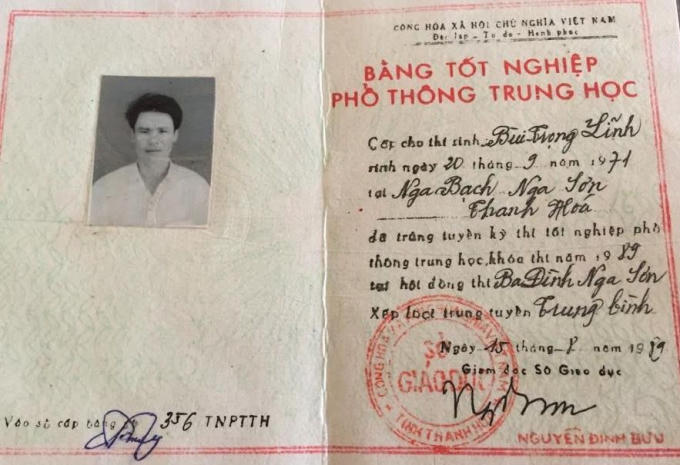 CỘNG HÒA XÃ HỘI CHỦ NGHĨA VIỆT NAM
Độc lập - Tự do - Hạnh phúc
BẰNG TỐT NGHIỆP
PHỔ THÔNG TRUNG HỌC
Cấp cho thí sinh Bùi Trọng Lĩnh
sinh ngày 20 tháng 9 năm 1971
tại Nga Bạch Nga Sơn
Thanh Hoá
đã trúng tuyển kỳ thi tốt nghiệp phổ
thông trung học, khóa thi năm 1989
tại hội đồng thi Ba Đình Nga Sơn
Xếp loại trúng tuyển Trung bình
Ngày 15 tháng 8 năm 1989
Giám đốc Sở Giáo dục
SỞ
GIÁO DỤC
TỈNH THANH HÓA
NGUYỄN ĐÌNH BƯU
Vào sổ cấp bằng số 356 TNPTTH